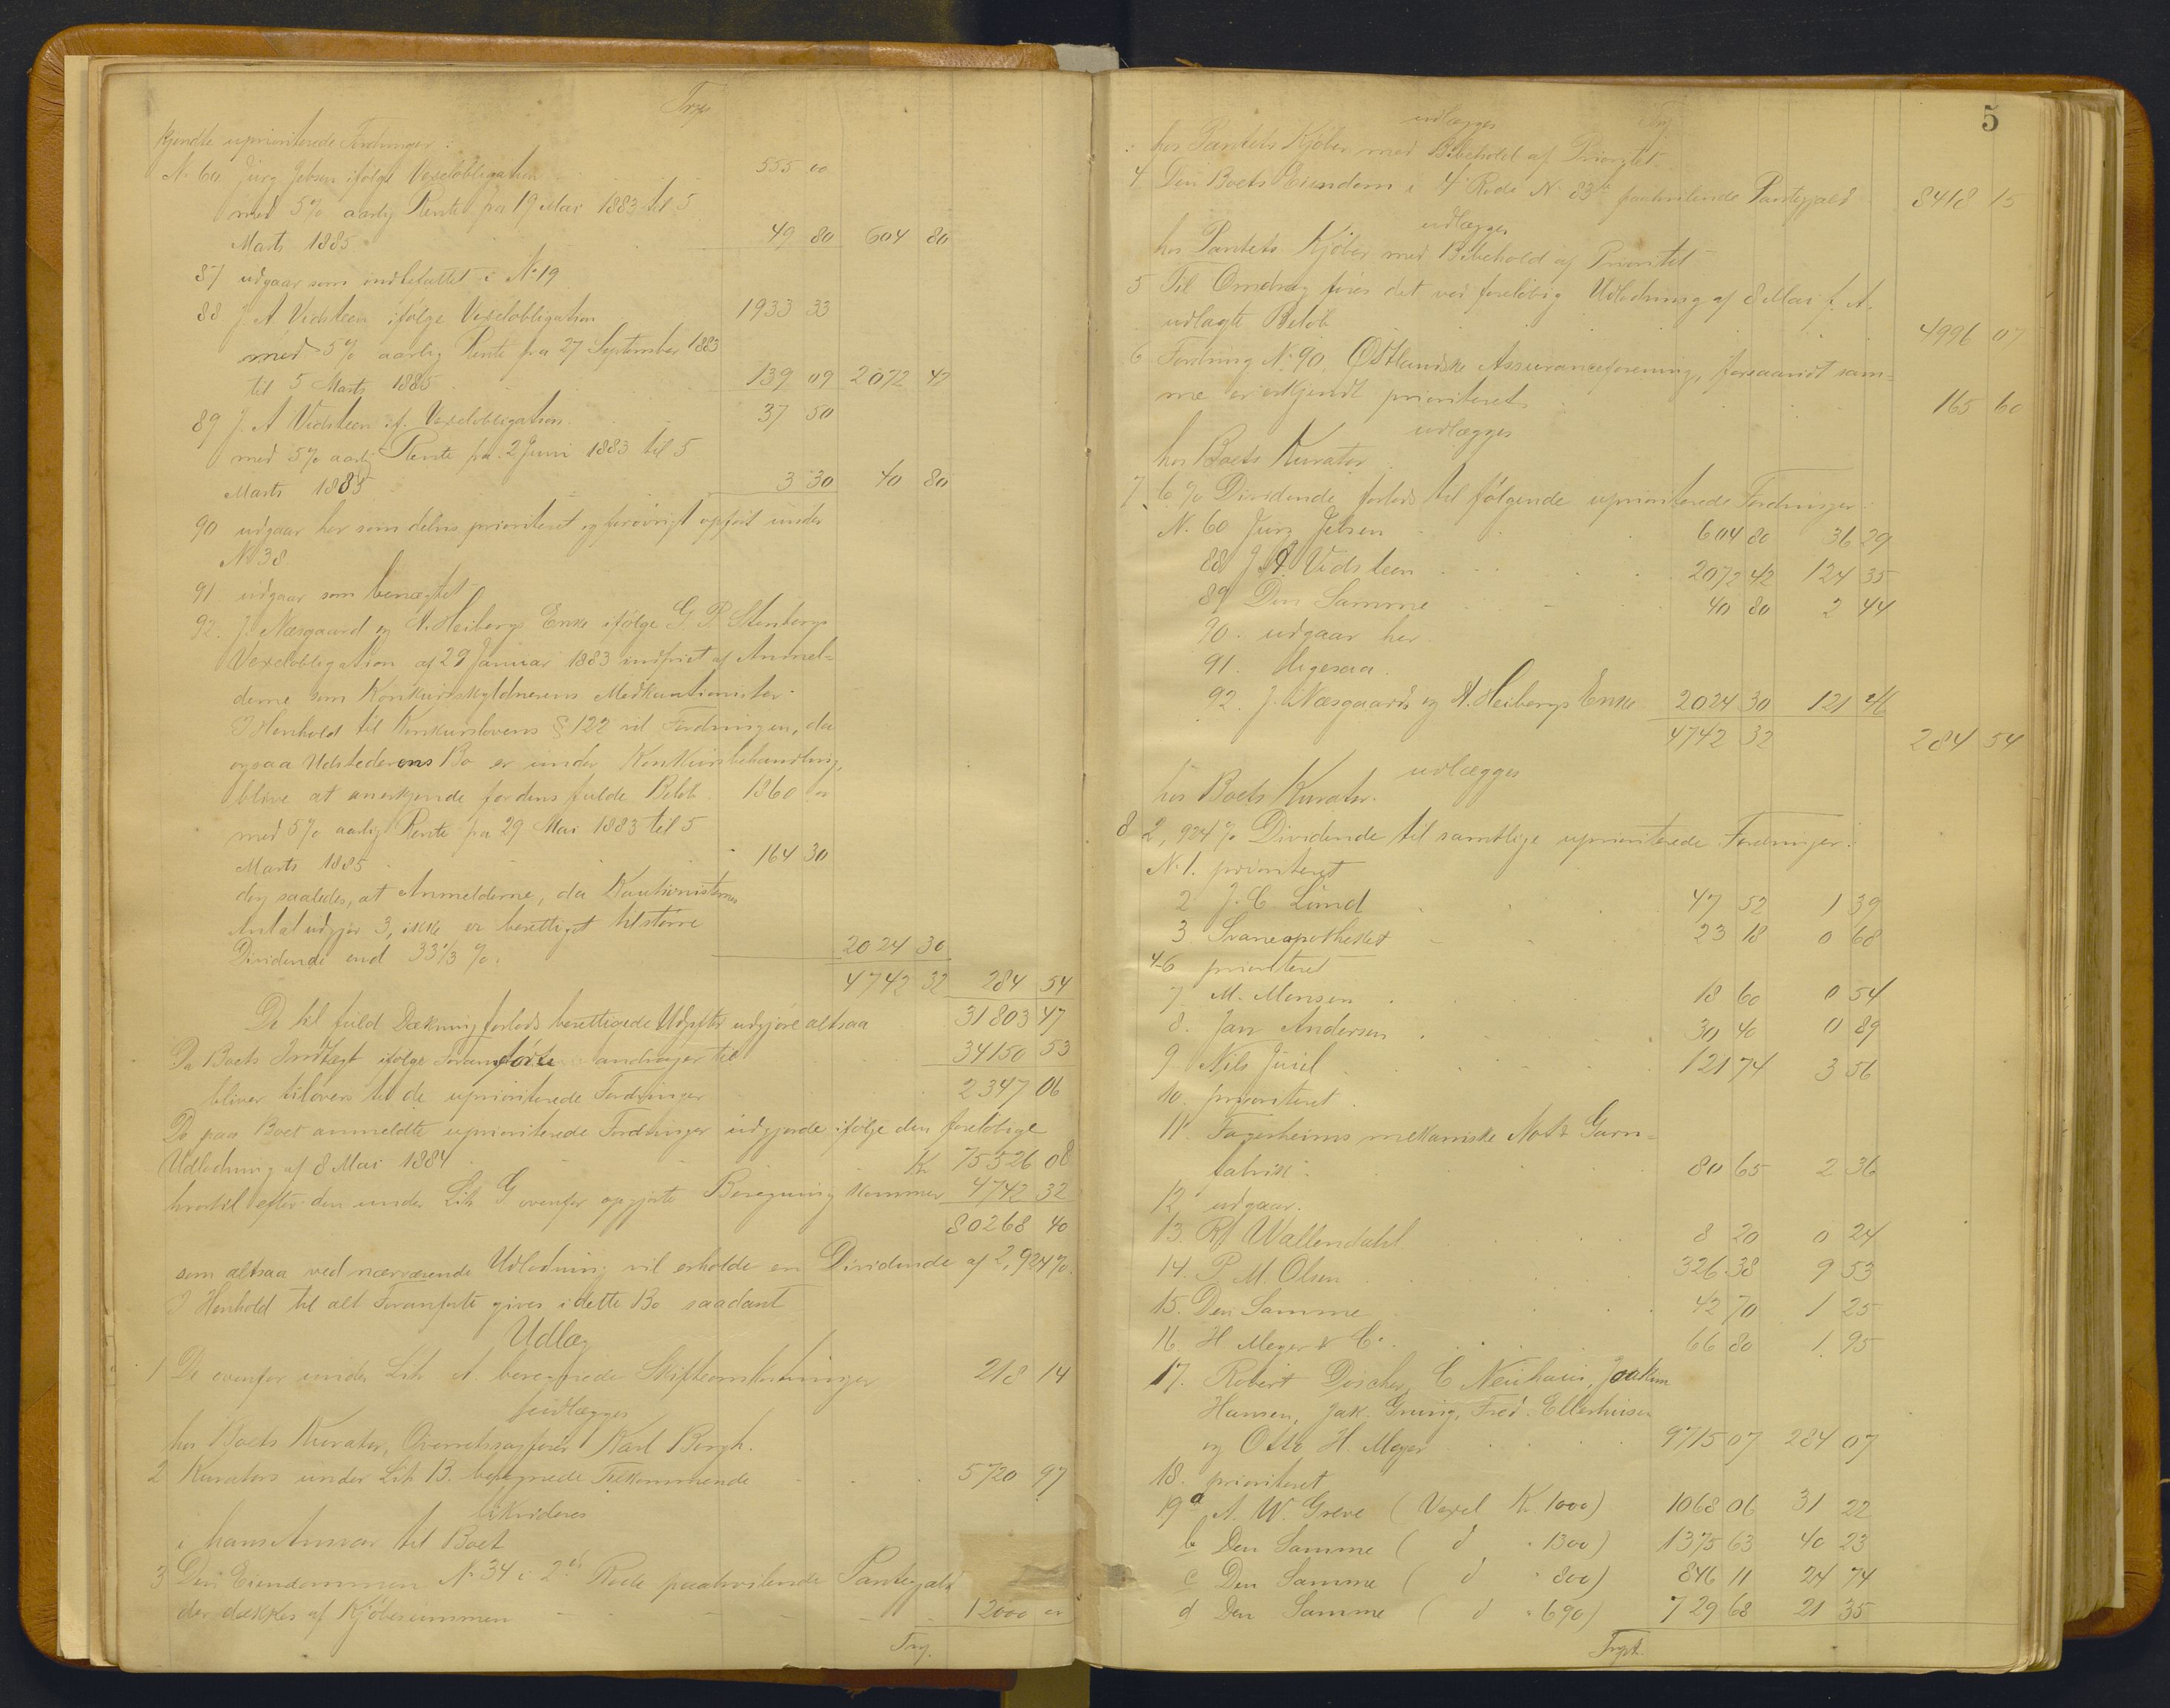 kjendte uprioriterede Fordringer:
No 60. Jürg Jebsen ifølge Vexelobligation 555 00
med 5% aarlig Rente fra 19 Mai 1883 til 5
Marts 1885 49 80 604 80
87 udgaar som indbefattet i No 19
88 J. A Vidsteen ifølge Vexelobligation 1933 33
med 5% aarlig Rente fra 27 September 1883
til 5 Marts 1885 139 09 2072 42
89 J. A Vidsteen if. Vexelobligation 37 50
med 5% aarlig Rente fra 2 Juni 1883 til 5
Marts 1885 3 30 40 80
90 udgaar her som delvis prioriteret og forøvrigt opført under
No 38
91 udgaar som benægtet
92. J. Næsgaard og A. Heibergs Enke ifølge G. P. Stenbergs
Vexelobligation af 29 Januar 1883 indfriet af Anmel-
derne som Konkursskyldnerens Medkautionister.
I Henhold til Konkurslovens § 122 vil Fordringen, da
ogsaa Udstederens Bo er under Konkursbehandling,
blive at anerkjende for dens fulde Beløb 1860 00
med 5% aarlig Rente fra 29 Mai 1883 til 5
Marts 1885 164 30
dog saaledes, at Anmelderne, da Kautionisternes
Antal udgjør 3, ikke er berettiget til større
Dividende end 33 1/3 %. 2024 30
4742 32 284 54
De til fuld Dækning forlods berettigede Udgifter udgjøre altsaa 31803 47
Da Boets Indtægt ifølge Foranførte andrager til 34150 53
bliver tilovers til de uprioriterede Fordringer 2347 06
De paa Boet anmeldte uprioriterede Fordringer udgjorde ifølge den foreløbige
Udlodning af 8 Mai 1884 Kr 75526 08
hvortil efter den under Lit G ovenfor opgjorte Beregning kommer 4742 32
80268 40
som altsaa ved nærværende Udlodning vil erholde en Dividende af 2,924%.
I Henhold til alt Foranførte gives i dette Bo saadant
Udlæg
1 De ovenfor under Lit A. beregnede Skifteomkostninger 218 14
udlægges
hos Boets Kurator, Overretssagfører Karl Bergh.
2 Kurators under Lit B. beregnede Tilkommende 5720 97
likvideres
i hans Ansvar til Boet
3 Den Eiendommen No 34 i 2den Rode paahvilende Pantegjæld
der dækkes af Kjøbesummen 12000 00
5
udlægges
hos Pantets Kjøber med Bibehold af Prioritet
4 Den Boets Eiendom i 4 Rode No 83 paahvilende Pantegjæld 8418 15
udlægges
hos Pantets Kjøber med Bibehold af Prioritet
5 Til Omdrag føres det ved foreløbig Udlodning af 8 Mai f. A.
udlagte Beløb 4996 07
6 Fordring No 90, Østlandske Assuranceforening, forsaavidt sam-
me er erkjendt prioriteret 165 60
udlægges
hos Boets Kurator
7 6% Dividende forlods til følgende uprioriterede Fordringer:
No. 60 Jürg Jebsen 604 80 36 29
88 J. A Vidsteen 2072 42 124 35
89 Den Samme 40 80 2 44
90. udgaar her.
91. ligesaa.
92. J. Næsgaards og A. Heibergs Enke 2024 30 121 46
4742 32 284 54
udlægges
hos Boets Kurator.
8 2,924% Dividende til samtlige uprioriterede Fordringer:
No 1. prioriteret
2 J. C. Lund 47 52 1 39
3 Svaneapotheket 23 18 0 68
4-6 prioriteret
7 M. Monsen 18 60 0 54
8. Jan Andersen 30 40 0 89
9 Nils Juul 121 74 3 56
10. prioriteret.
11 Fagerheims mekaniske Not & Garn-
fabrik. 80 65 2 36
12 udgaar.
13. Rf Wallendahl 8 20 0 24
14. P. M. Olsen 326 38 9 53
15. Den Samme 42 70 1 25
16 H Meyer & Co. 66 80 1 95
17. Robert Döscher, C Neuhaus, Joakim
Hansen, Jak. Gruing, Fred. Ellerhusen
og Otto H. Meyer 9715 07 284 07
18. prioriteret
19 a A. W. Greve ( Vexel Kr. 1000) 1068 06 31 22
b Den Samme ( d " 1300) 1375 63 40 23
c Den Samme ( d " 800) 846 11 24 74
d Den Samme ( d " 690) 729 68 21 35